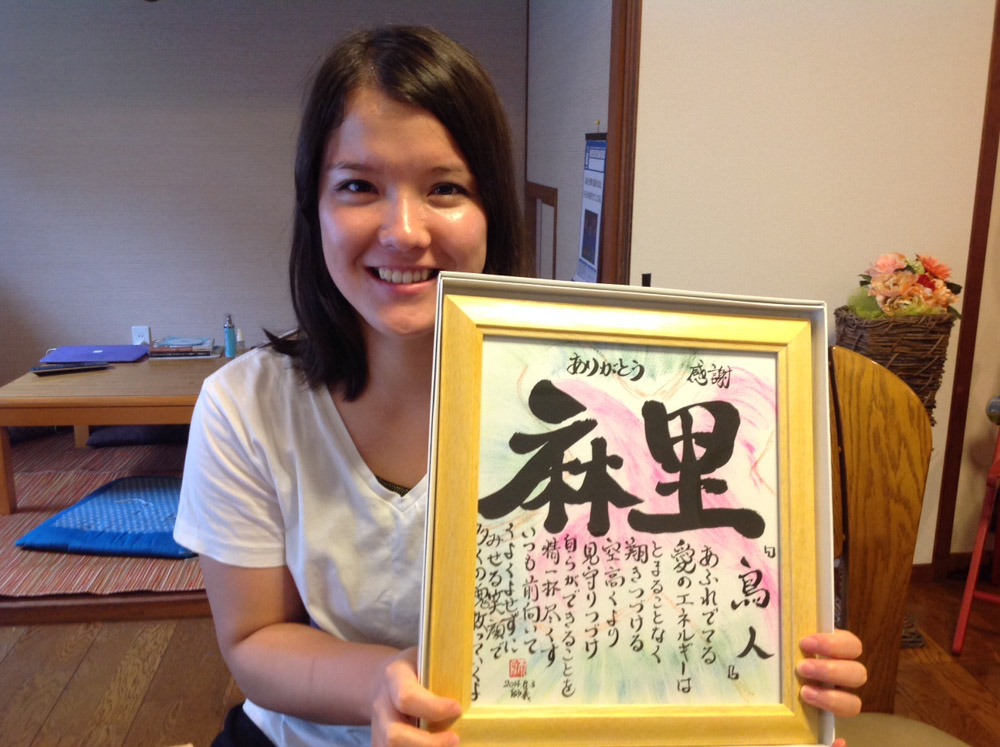 ありがとう 感謝
麻里
『鳥人』
あふれでてる
愛のエネルギーは
とまることなく
翔きつづける
空高くより
見守りつづけ
自らができることを
精一杯尽くす
いつも前向いて
くよくよせずに
みせる笑顔で
多くの
2014.8.3